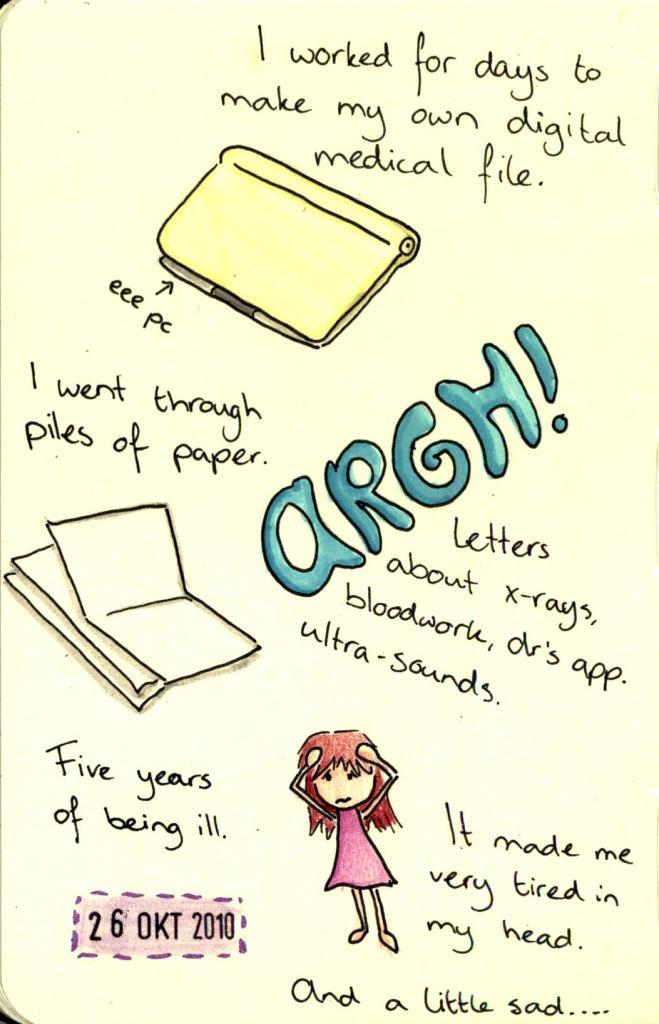 I worked for days to
make my own digital
medical file.
eee
pc
I went through
piles of paper.
ARGH!
Letters
about x-rays,
bloodwork, dr's app.
ultra-sounds.
Five years
of being ill.
26 OKT 2010
It made me
very tired in
my head.
And a little sad....